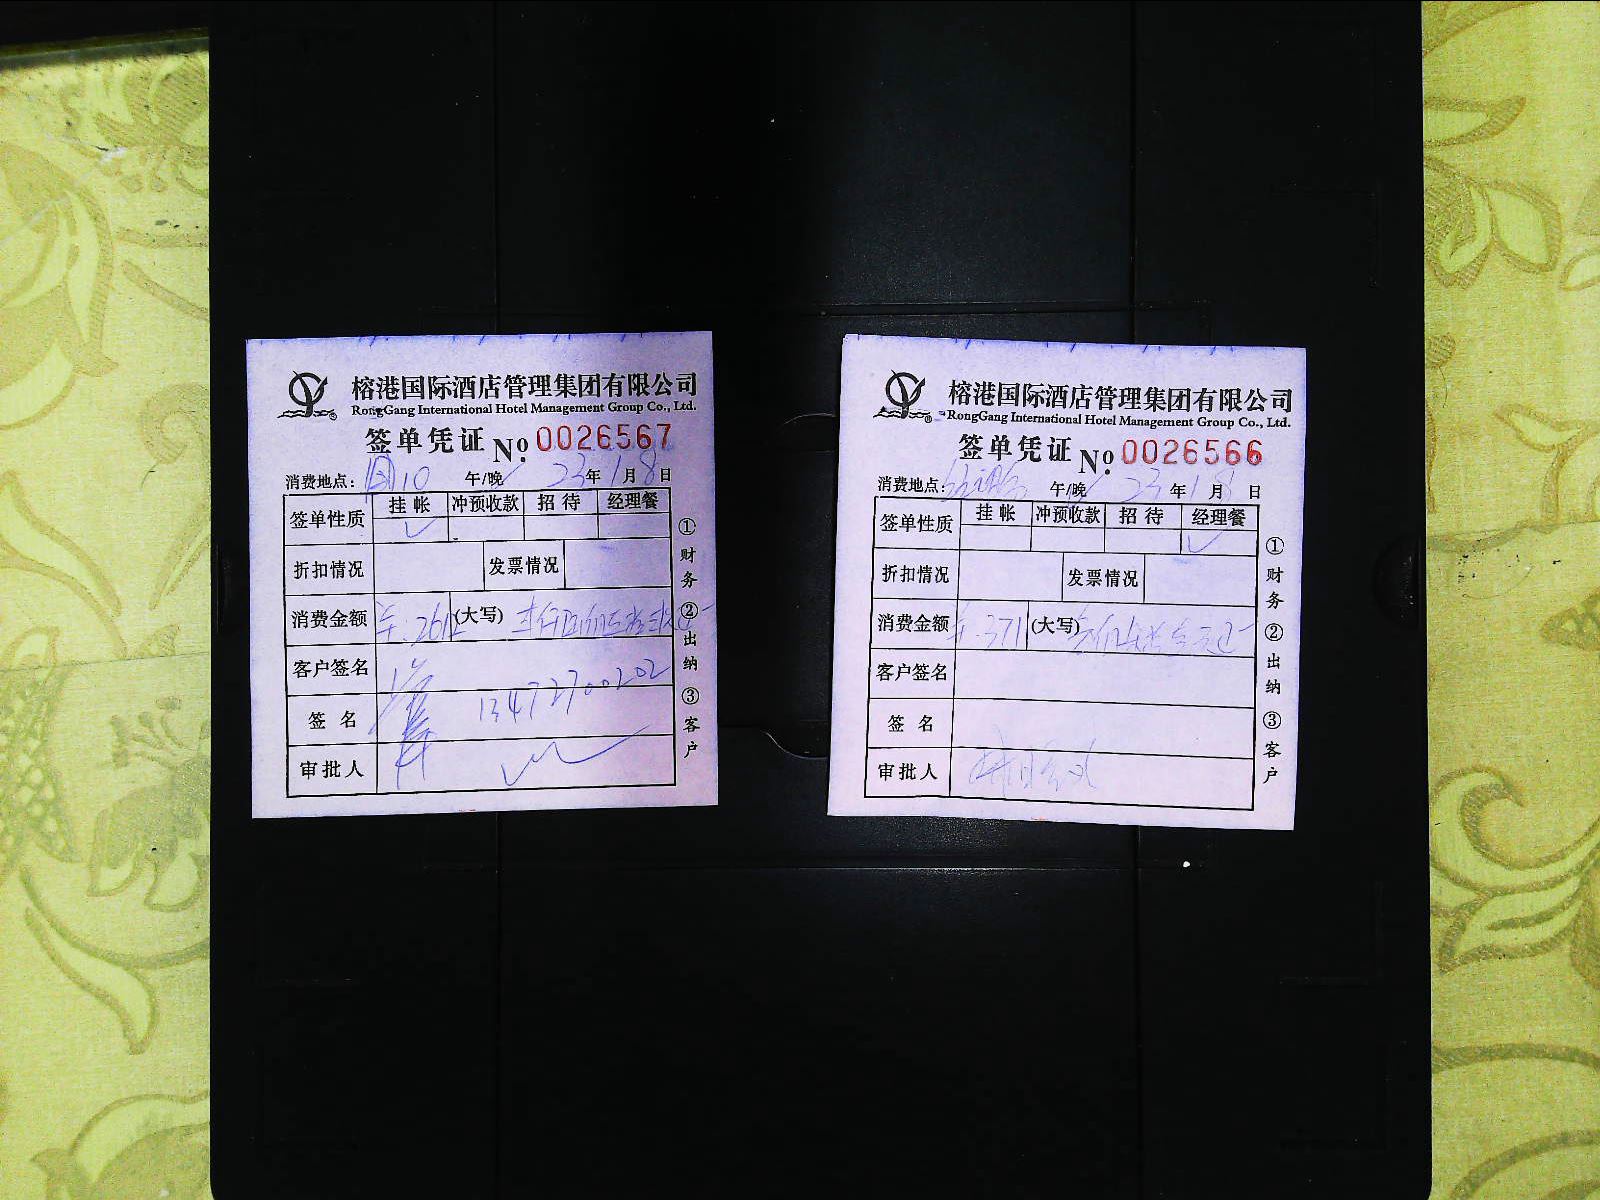 榕港国际酒店管理集团有限公司
RongGang International Hotel Management Group Co., Ltd.
签单凭证 No. 0026567
消费地点: 10 午/晚 23年1月8日
签单性质 挂帐 冲预收款 招待 经理餐
✓
折扣情况 发票情况
消费金额 (大写)
客户签名
签名 13472700202
审批人
①财务 ②出纳 ③客户
榕港国际酒店管理集团有限公司
RongGang International Hotel Management Group Co., Ltd.
签单凭证 No. 0026566
消费地点: 午/晚 23年1月8日
签单性质 挂帐 冲预收款 招待 经理餐
✓
折扣情况 发票情况
消费金额 371 (大写)
客户签名
签名
审批人
①财务 ②出纳 ③客户